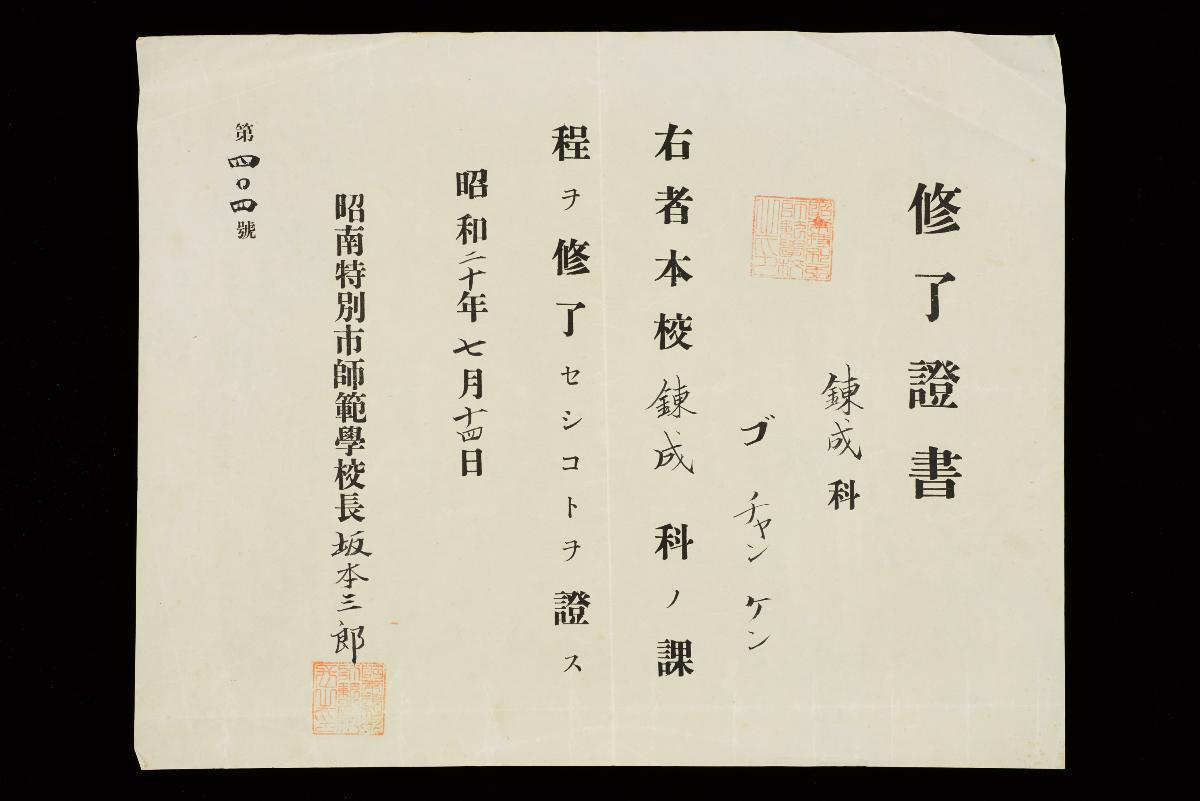 修了證書
錬成科
ゴ チャン ケン
右者本校錬成科ノ課
程ヲ修了セシコトヲ證ス
昭和二十年七月十四日
昭南特別市師範學校長坂本三郎
第四〇四號